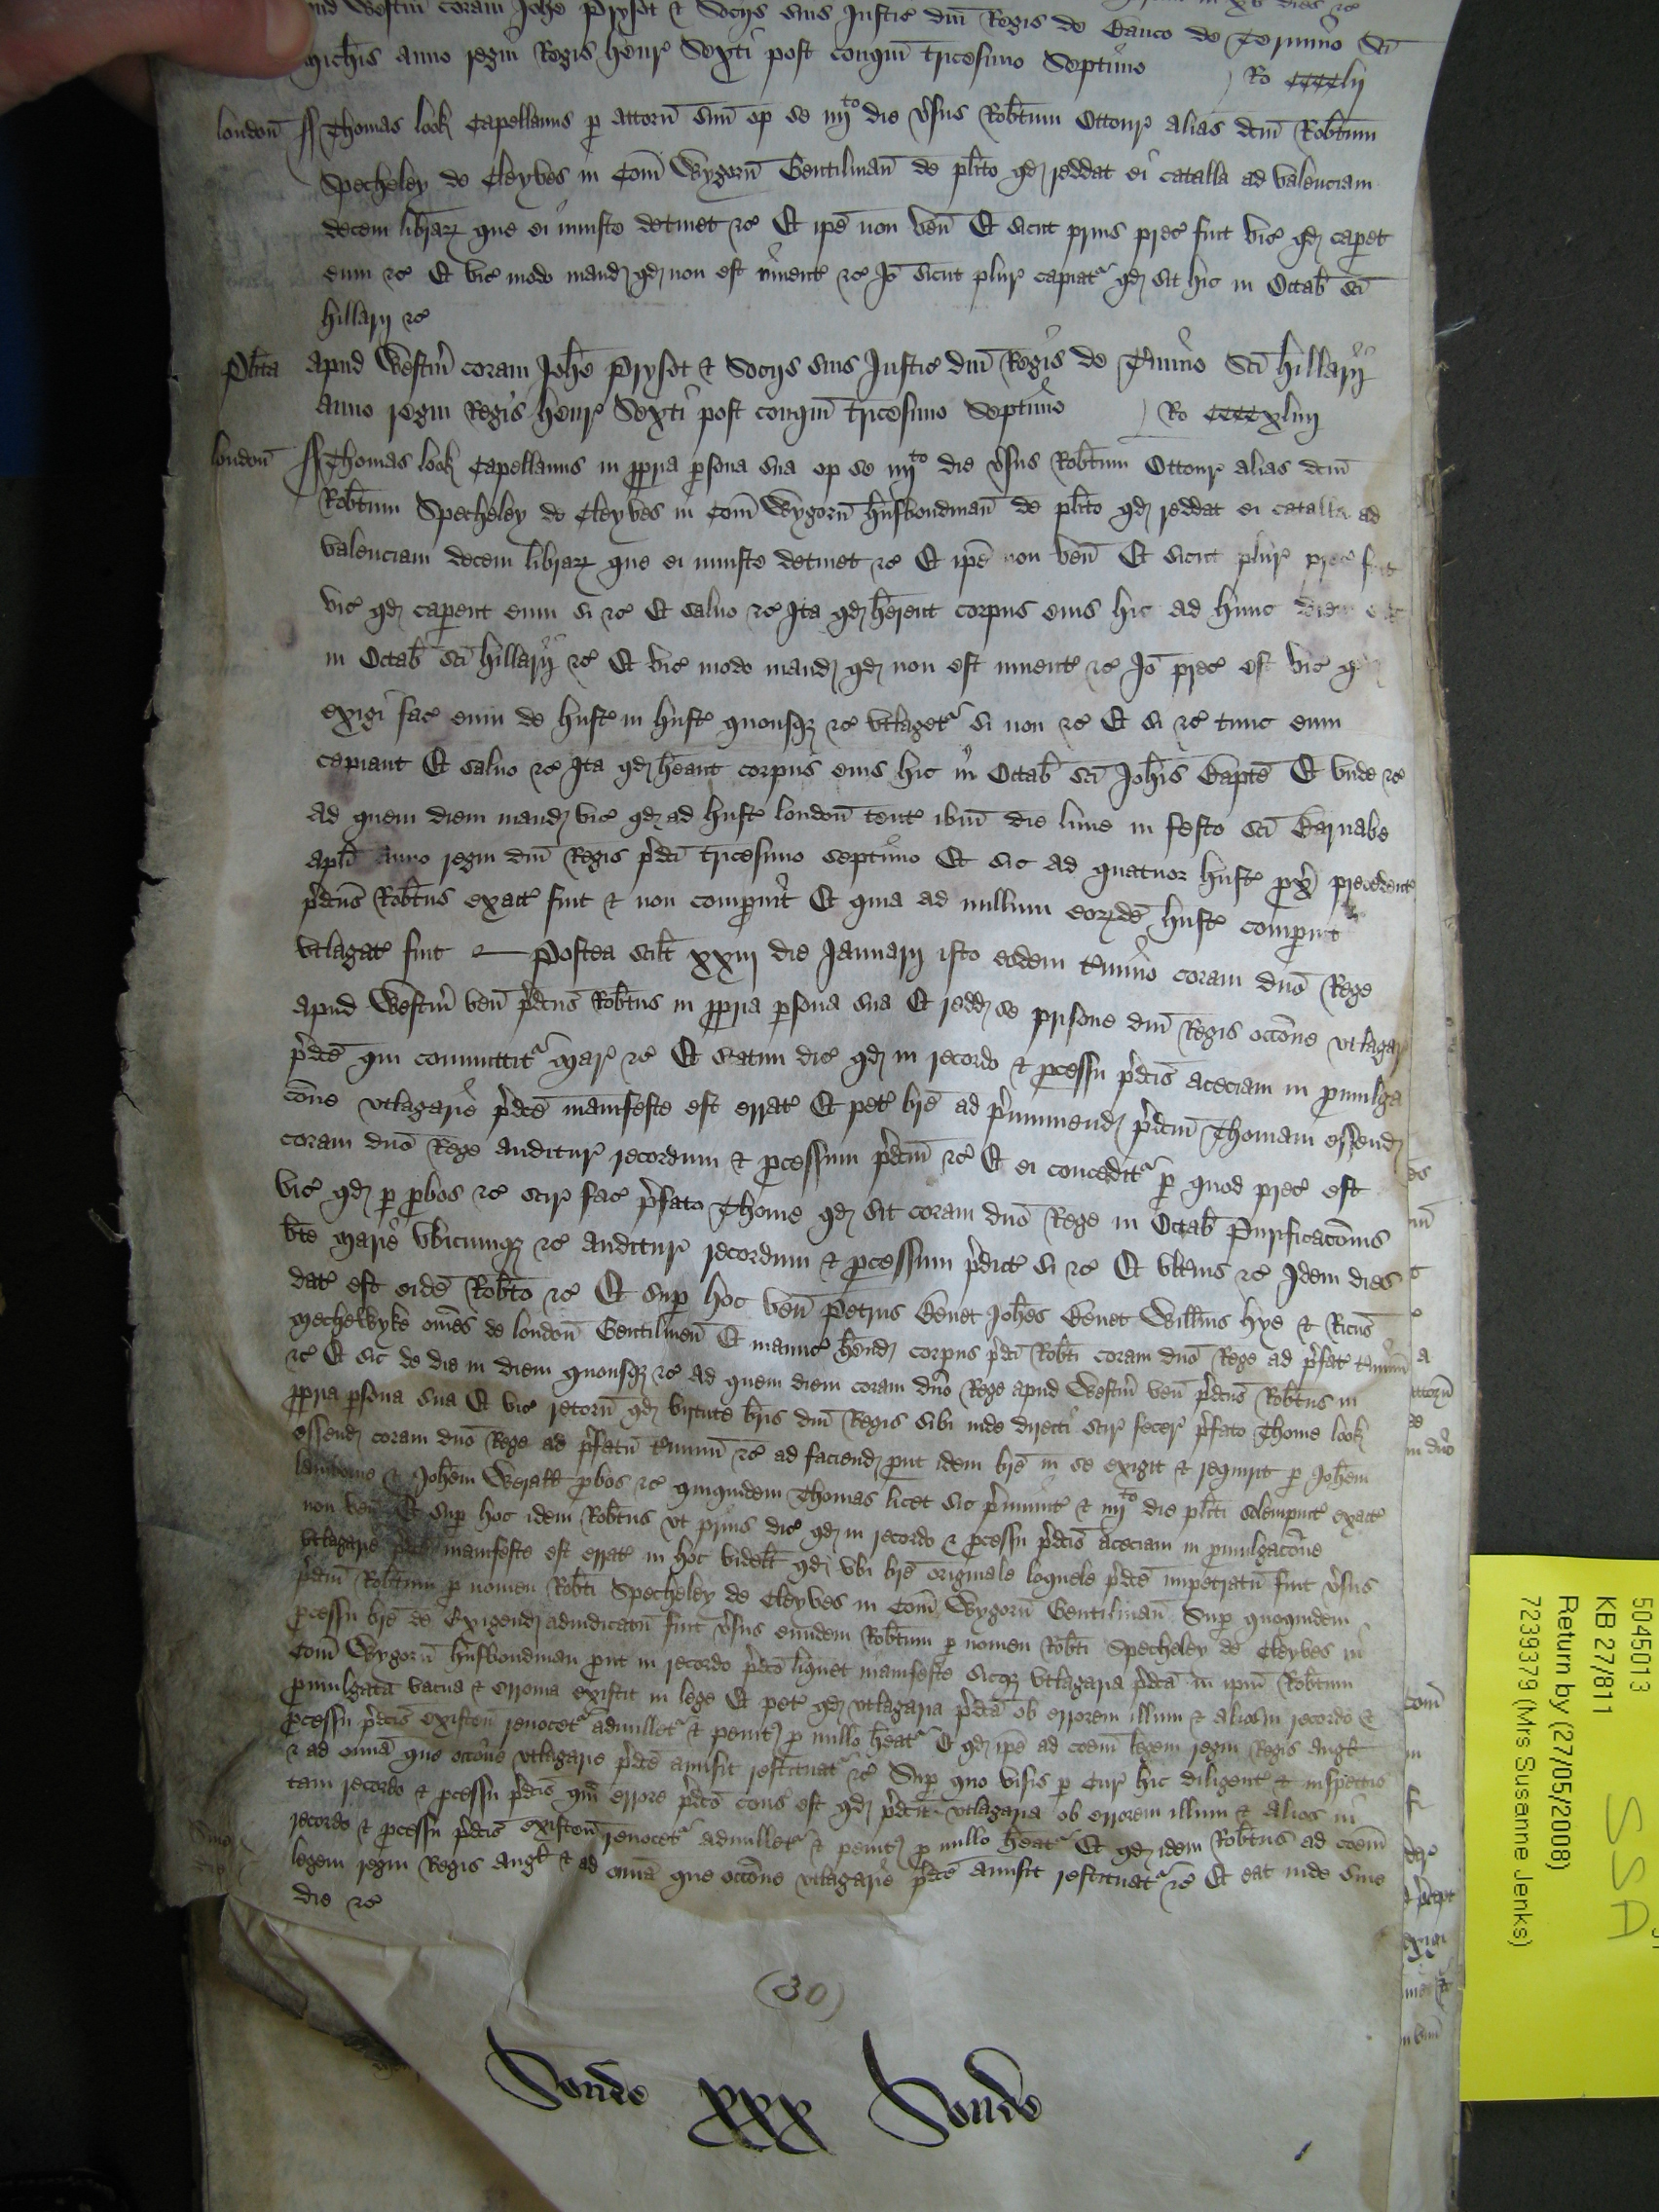 apud Westm̄ coram Joħe Prysot & Socijs suis Justic dn̄i Regis de Banco de Termino Sc̄i
Mich̄is anno regni Regis Henr Sexti post conqm̄ tricesimo Septimo Ro CCCClij
london̄ Thomas look Capellanus p attorn̄ suū op se iiijto die v̓sus Rob̄tum Ottour alias dc̄m Rob̄tum
Specheley de Cleyves in Com̄ Wygorn̄ Gentilman̄ de pl̄ito qd reddat ei catalla ad valenciam
decem libraꝝ que ei iniuste detinet &c Et ip̄e non ven̄ Et sicut prius prec fuit vic qd caperet
eum &c Et vic modo mand qd non est invent &c Jō sicut plur capiat qd sit hic in Octab̄ Sc̄i
hillarij &c
Pl̄ita apud Westm̄ coram Joħe Prysot & Socijs suis Justic dn̄i Regis de T̓mino Sc̄i Hillarij
anno regni Regis Henr Sexti post conqm̄ tricesimo Septimo Ro CCCCxliiij
london̄ Thomas look Capellanus in ꝓpria ꝑsona sua op se iiijto die v̓sus Rob̄tum Ottour alias dc̄m
Rob̄tum Specheley de Cleyves in Com̄ Wygorn̄ husbondman̄ de pl̄ito qd reddat ei catalla ad
valenciam decem libraꝝ que ei iniuste detinet &c Et ip̄e non ven̄ Et sicut plur prec fuit
vic qd caperent eum si &c Et salvo &c Ita qd h̄erent corpus eius hic ad hunc diem
in Octab̄ Sc̄i Hillarij &c Et vic modo mand qd non est invent &c Jō prec est vic qd
exigi fac eum de hust in hust quousqꝫ &c vtlaget si non &c Et si &c tunc eum
capiant Et salvo &c Ita qd h̄eant corpus eius hic in Octab̄ Sc̄i Joħis Bapt̄e Et vnde &c
Ad quem diem mand vic qd ad hust london̄ tent ibm̄ die lune in festo Sc̄i Barnabe
apl̄i anno regni dn̄i Regis p̓dc̄i tricesimo septimo Et sic ad quatuor hust prox precedent
p̓dc̄us Rob̄tus exact fuit & non comp̄uit Et quia ad nullum eoꝝdē hust comp̄uit
vtlagat fuit Postea scil̄t xxiij die Januarij isto eodem t̓mino coram dn̄o Rege
apud Westm̄ ven̄ p̓dc̄us Rob̄tus in ꝓpria ꝑsona sua Et redd se prisone dn̄i Regis occōne vtlagar
p̓dc̄e qui committit Mar &c Et statim dic qd in recordo & ꝓcessu p̓dc̄is aceciam in ꝓmulga
cōne vtlagarie p̓dc̄e manifeste est errat Et pet br̄e ad p̓muniend p̓dc̄m Thomam essend
coram dn̄o Rege auditur recordum & ꝓcessum p̓dc̄m &c Et ei concedit ꝑ quod prec est
vic qd ꝑ ꝓbos &c scir fac p̓fato Thome qd sit coram dn̄o Rege in Octab̄ Purificacōnis
b̄te Marie vbicumqꝫ &c auditur recordum & ꝓcessum p̓dict si &c Et vlterius &c Idem dies
dat est eidē Rob̄to &c Et sup hoc ven̄ Petrus Benet Joħes Benet Will̄us hye & Ric̄us
Mechelwyke om̄es de london̄ Gentilmen̄ Et manuc h̄end corpus p̓dc̄i Rob̄ti coram dn̄o Rege ad p̓fat t̓minū
&c Et sic de die in diem quousqꝫ &c Ad quem diem coram dn̄o Rege apud Westm̄ ven̄ p̓dc̄us Rob̄tus in
ꝓpria ꝑsona sua Et vic retorn̄ qd virtute br̄is dn̄i Regis sibi inde directi scir fecer p̓fato Thome look
essend coram dn̄o Rege ad p̓fatū t̓minū &c ad faciend ꝓut idem br̄e in se exigit & requirit ꝑ Joħem
& Joħem Weralt ꝓbos &c quiquidem Thomas licet sic p̓munit & iiijto die pl̄iti solempnit exact
non ven̄ Et sup hoc idem Rob̄tus vt prius dic qd in recordo & ꝓcessu p̓dc̄is aceciam in ꝓmulgacōne
vtlagarie p̓dc̄e manifeste est errat in hoc videl̄t qd vbi br̄e originale loquele p̓dc̄e impetratū fuit v̓sus
p̓dc̄m Rob̄tum ꝑ nomen Rob̄ti Specheley de Cleyves in Com̄ Wygorn̄ Gentilman̄ Sup quoquidem
ꝓcessu br̄e de Exigend adiudicatū fuit v̓sus eundem Rob̄tum ꝑ nomen Rob̄ti Specheley de Cleyves in
Com̄ Wygorn̄ husbondman ꝓut in recordo p̓dc̄o liquet manifeste Sicqꝫ vtlagaria p̓dc̄a in ip̄m Rob̄tum
ꝓmulgata vacua & erronia existit in lege Et pet qd vtlagaria p̓dc̄a ob errorem illum & alios in recordo &
ꝓcessu p̓dc̄is existen̄ revocet adnullet & penit ꝓ nullo h̄eat Et qd ip̄e ad cōem legem regni Regis Angl̄
& ad om̄ia que occōne vtlagarie p̓dc̄e amisit restituat &c Sup quo visis ꝑ Cur hic diligent & inspectis
tam recordo & ꝓcessu p̓dc̄is qm̄ errore p̓dc̄o cons est qd p̓dc̄a vtlagaria ob errorem illum & alios in
recordo & ꝓcessu p̓dc̄is existen̄ revocet adnullet & penit ꝓ nullo h̄eat Et qd idem Rob̄tus ad cōem
legem regni Regis Angl̄ & ad om̄ia que occōne vtlagarie p̓dc̄e amisit restituat &c Et eat inde sine
die &c
(30)
Sonde xxx Sonde
5045013
KB 27/811
Return by (27/05/2008)
7239379 (Mrs Susanne Jenks)
SSA